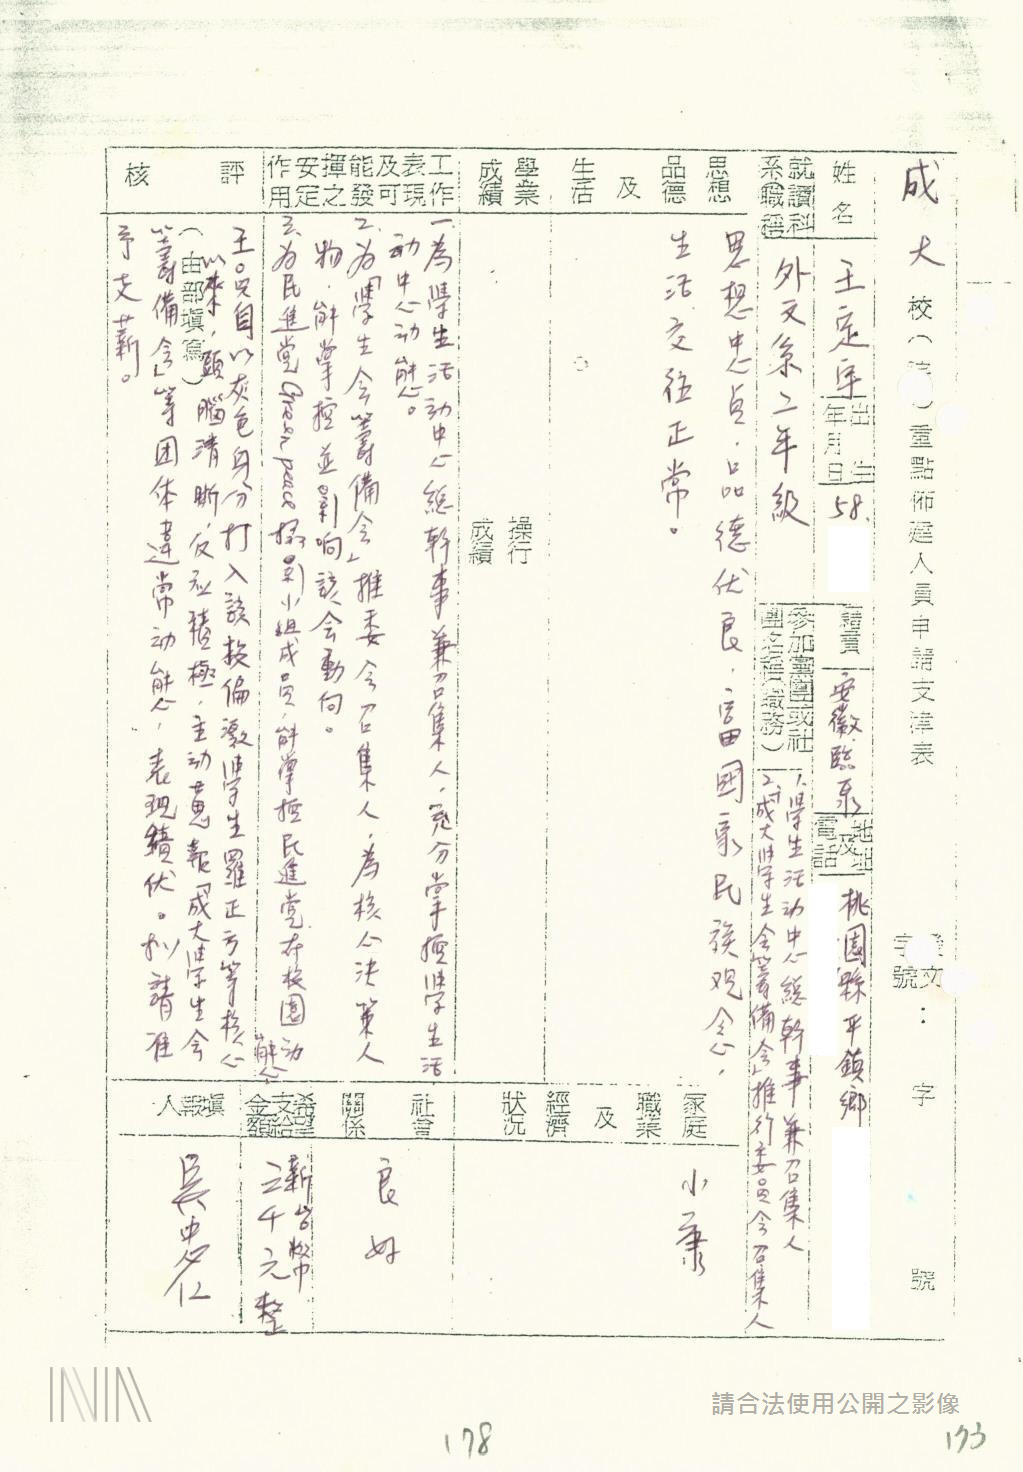 成大校(院)重點佈建人員申請支津表
發文字號：　字　號
姓名
王定宇
出生年月日
58.
籍貫
安徽臨泉
地址及電話
桃園縣平鎮鄉
就讀科系職稱
外文系二年級
參加黨團或社團名稱(職務)
1.學生活动中心總幹事兼召集人
2.「成大學生会籌備会」推行委員会召集人
思想品德及生活
思想忠貞，品德优良，富國家民族观念，
生活交往正常。
學業成績
操行成績
工作表現及可能發揮之安定作用
一、為學生活动中心總幹事兼召集人，充分掌控學生活
动中心动態。
2.為「學生会籌備会」推委会召集人，為核心決策人
物，能掌控並影响該会動向。
3.為民進党Green peace 攝影小組成員，能掌控民進党在校園动態
評核
(由部填寫)
王○只自以灰色身分打入該校偏激學生羅正方等核心
以來，頭腦清晰，反应積極，主动蒐報「成大學生会
籌備会」等团体違常动態，表現績优。拟請准
予支薪。
家庭職業及經濟狀況
小康
社會關係
良好
希望支給金額
新台幣
二千元整
填報人
吳忠仁
請合法使用公開之影像
178
173